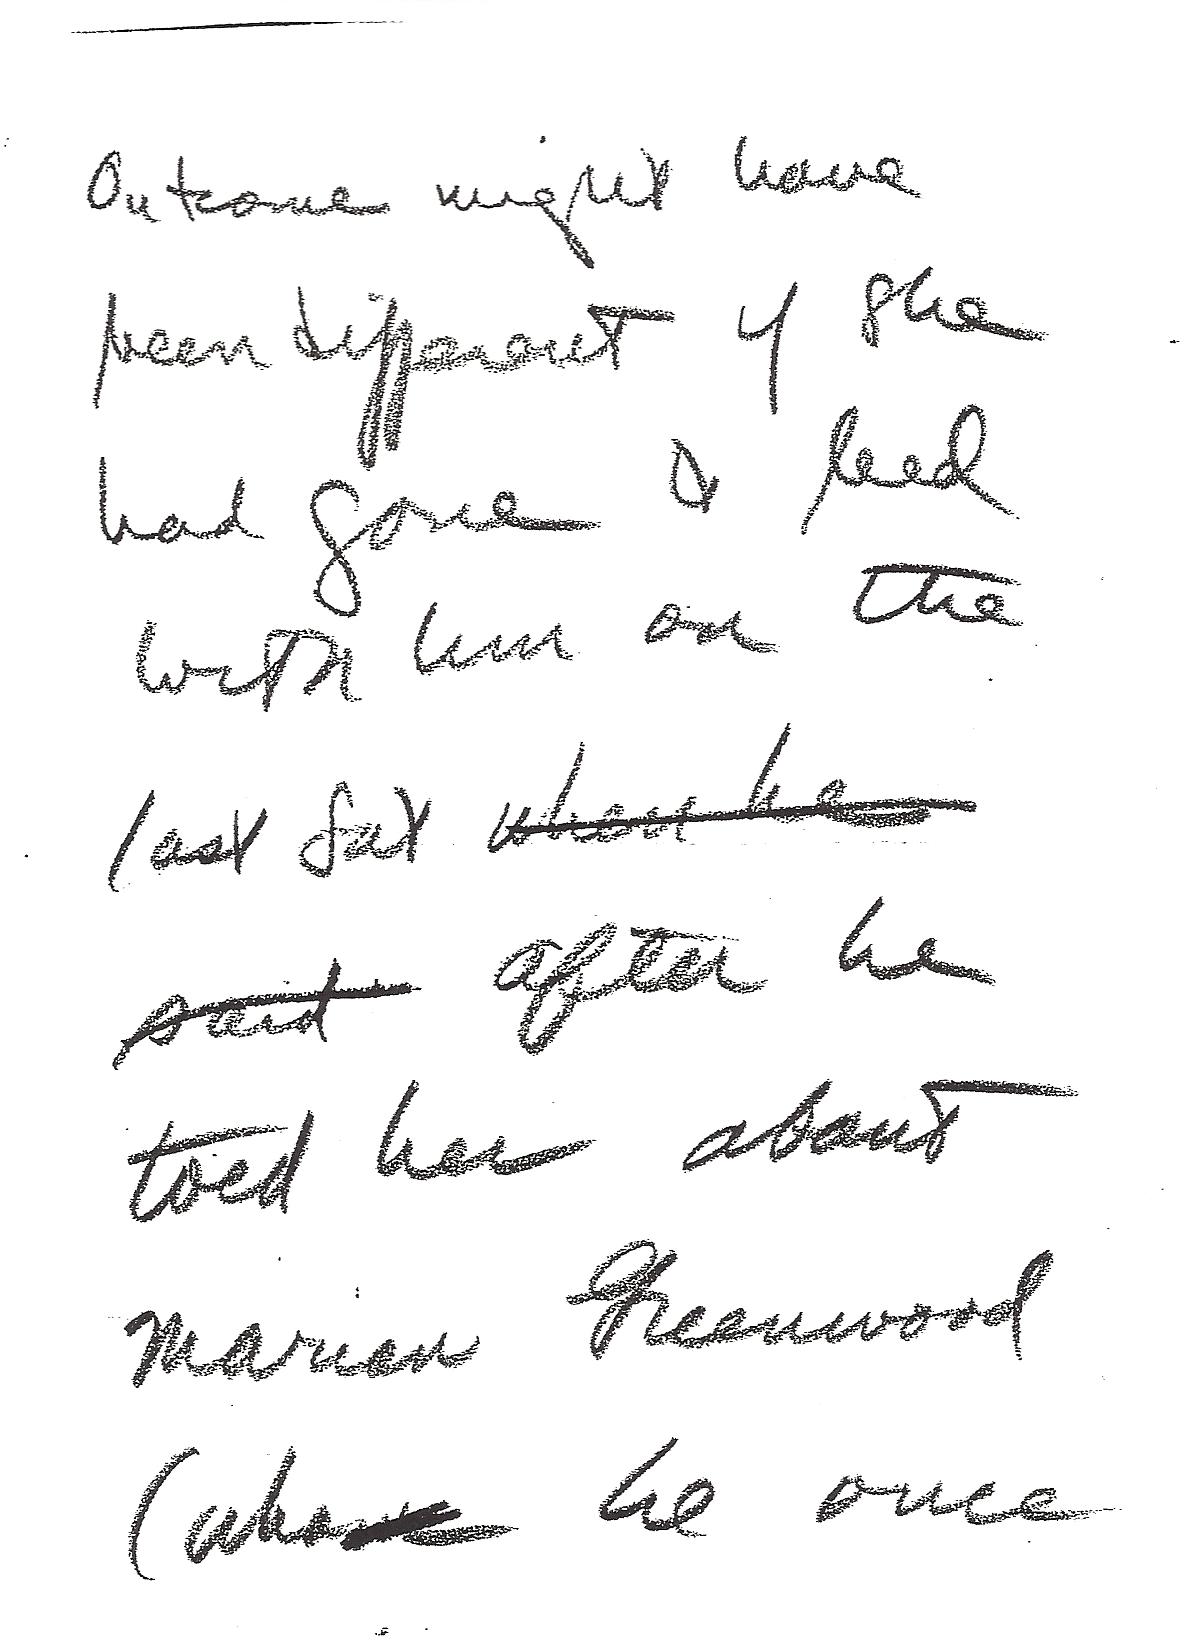 Outcome might have
been different if she
had gone to bed
with him on the
last Sat when he
said after he
told her about
Marion Greenwood
(who he once